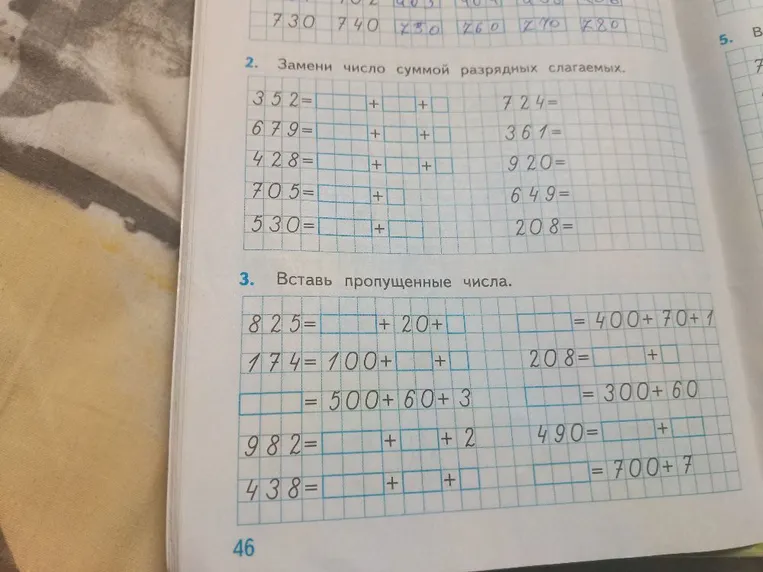 730 740 750 760 770 780
2. Замени число суммой разрядных слагаемых.
352= + + 724=
679= + + 361=
428= + + 920=
705= + 649=
530= + 208=
3. Вставь пропущенные числа.
825= + 20+ = 400+70+1
174=100+ + 208= +
= 500+60+3 = 300+60
982= + + 2 490= +
438= + + = 700+7
46
5.